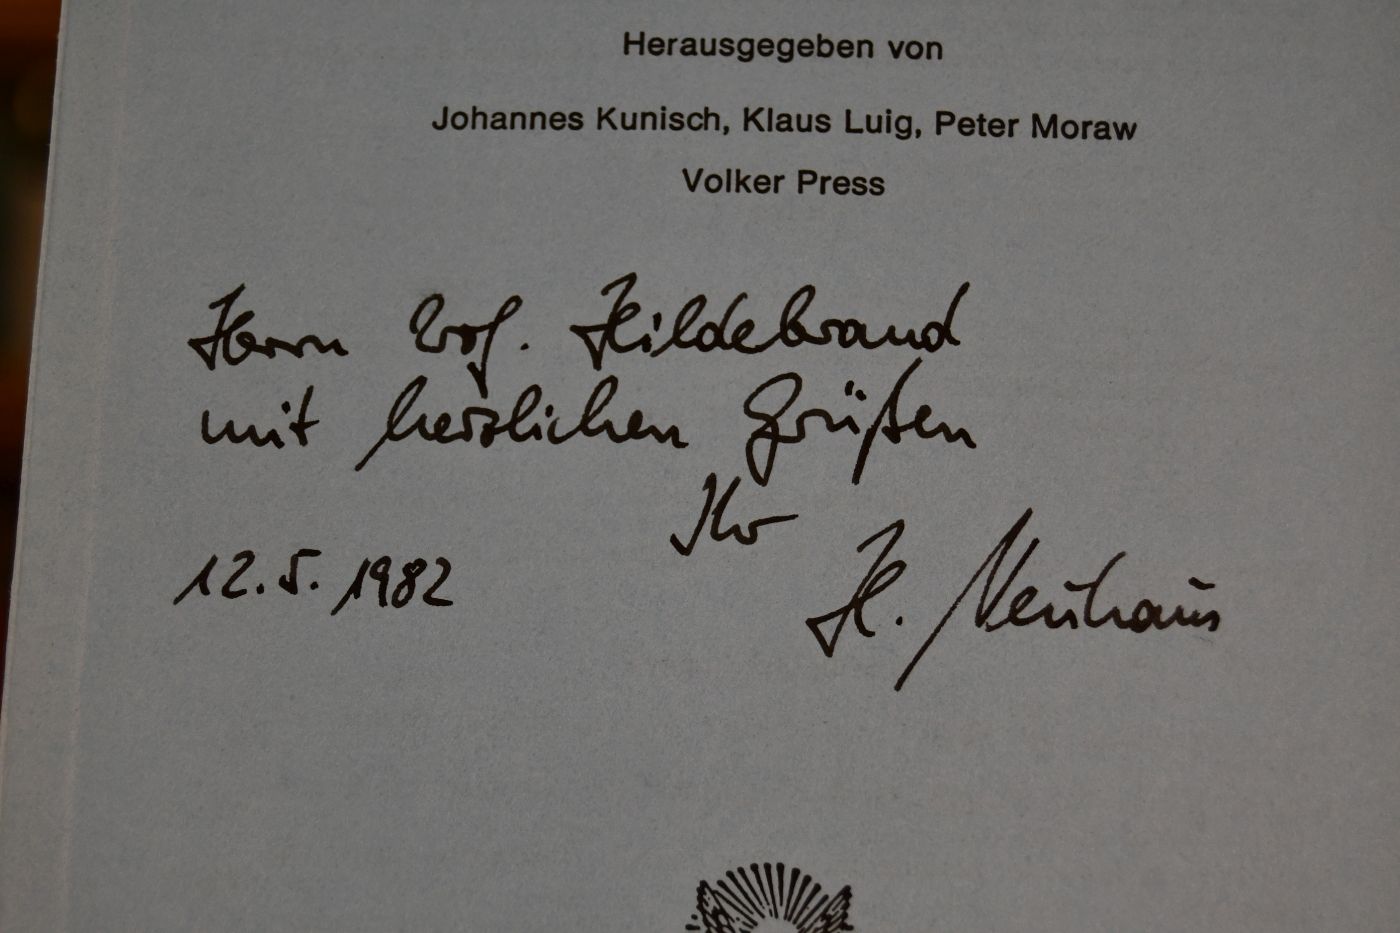 Herausgegeben von
Johannes Kunisch, Klaus Luig, Peter Moraw
Volker Press
Herrn Prof. Hildebrand
mit herzlichen Grüßen
Ihr
12.5.1982
H. Neuhaus